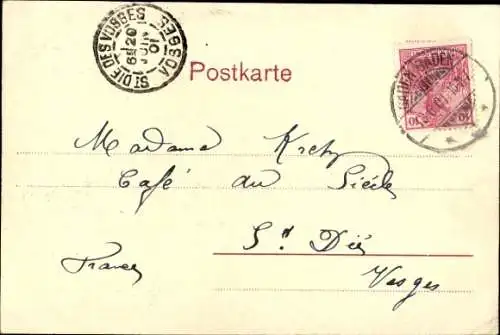 ST DIE DES VOSGES VOSGES
6E 20
JUIN
01
Postkarte
BADEN-BADEN
10 10
Madame Kretz
Café du Siècle
St Dié
France
Vosges